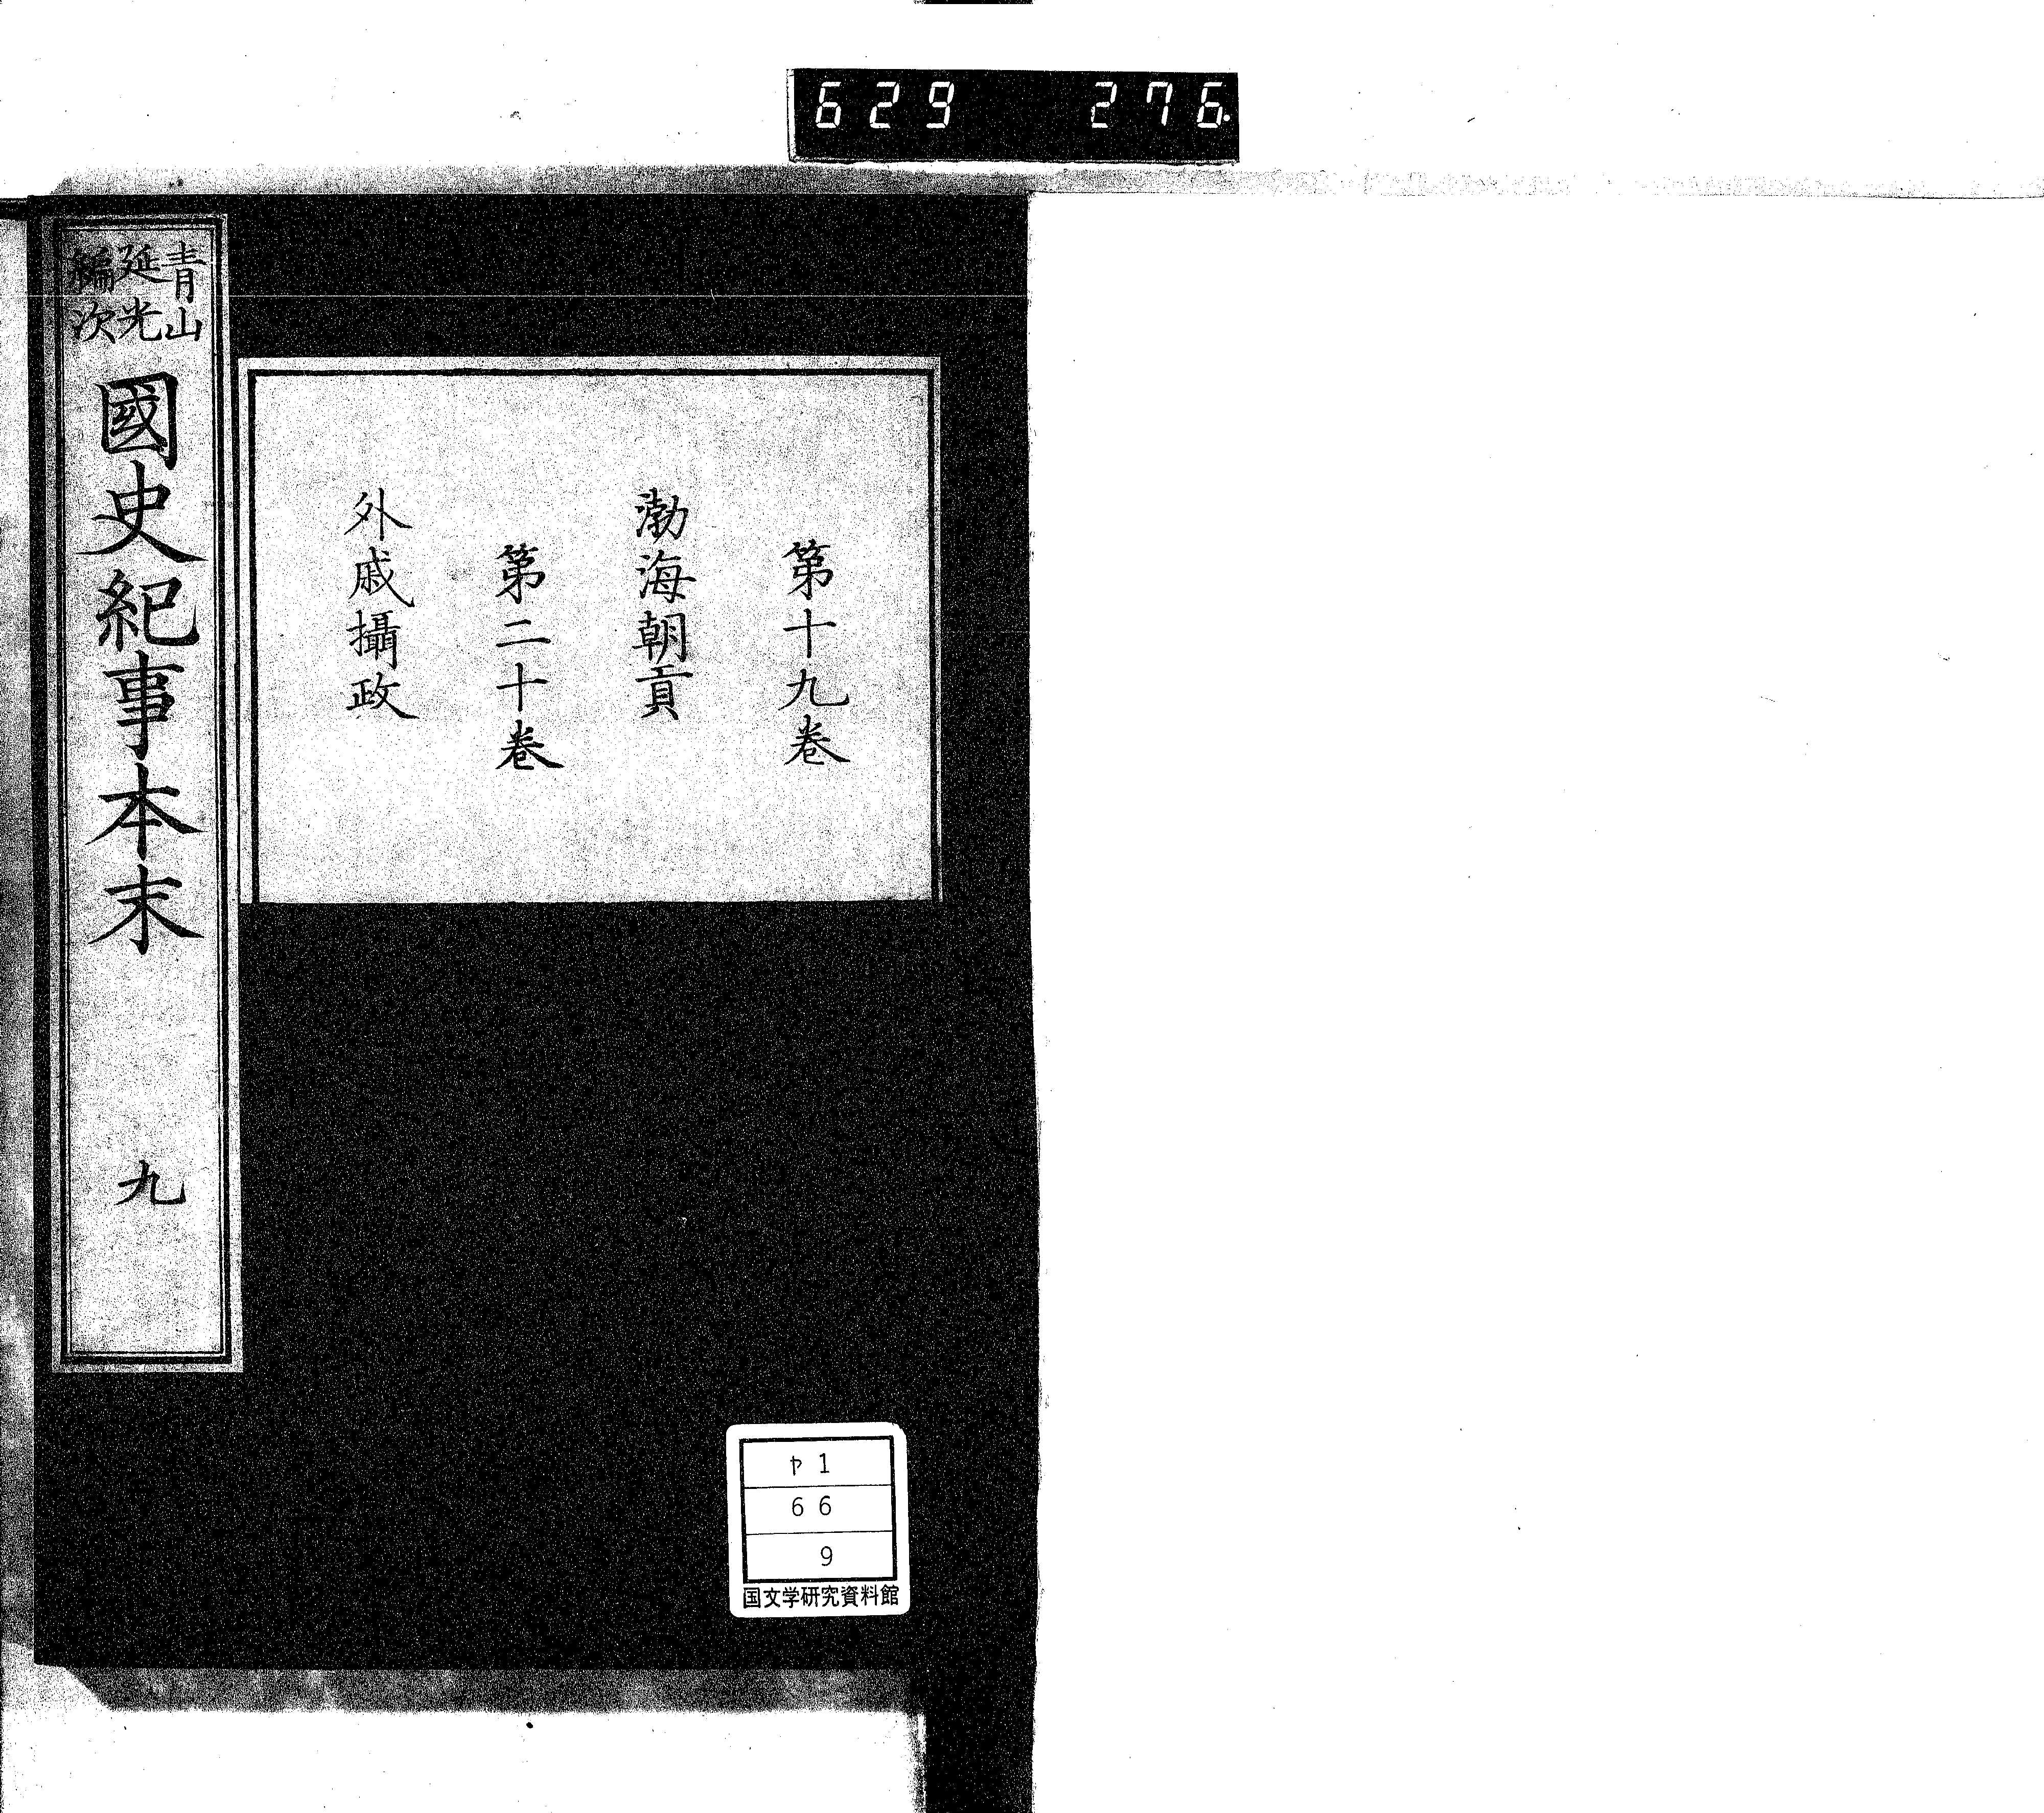 629 276.
青山
延光
編次
國史紀事本末 九
第十九卷
渤海朝貢
第二十卷
外戚攝政
ヤ1
66
9
国文学研究資料館